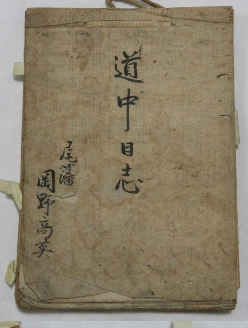 道中日志
尾藩
岡野高英